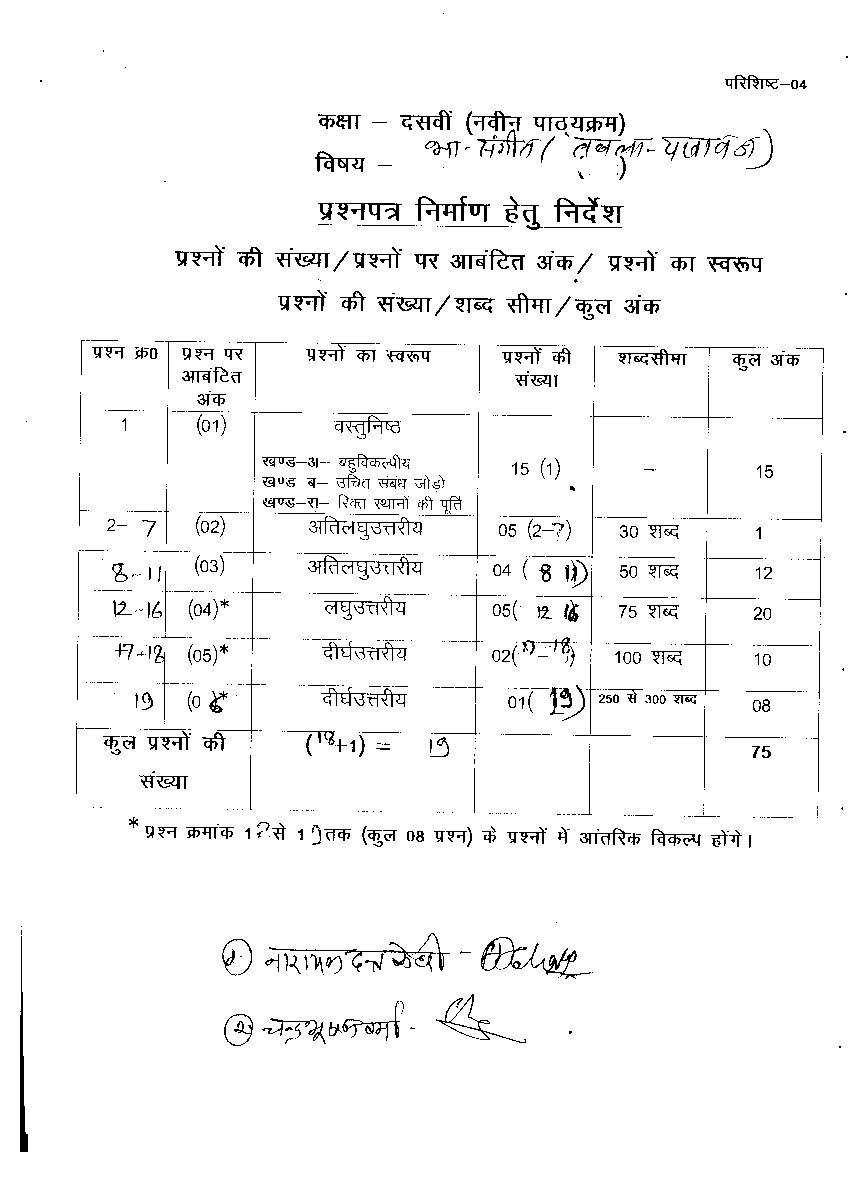 परिशिष्ट–04
कक्षा – दसवीं (नवीन पाठ्यक्रम)
विषय – भा-संगीत (तबला-पखावज)
प्रश्नपत्र निर्माण हेतु निर्देश
प्रश्नों की संख्या/प्रश्नों पर आबंटित अंक/ प्रश्नों का स्वरूप
प्रश्नों की संख्या/शब्द सीमा/कुल अंक
प्रश्न क्र0 प्रश्न पर आबंटित अंक प्रश्नों का स्वरूप प्रश्नों की संख्या शब्दसीमा कुल अंक
1 (01) वस्तुनिष्ठ
खण्ड–अ– बहुविकल्पीय
खण्ड ब– उचित संबंध जोड़ो 15 (1) – 15
खण्ड–स– रिक्त स्थानों की पूर्ति
2- 7 (02) अतिलघुउत्तरीय 05 (2-7) 30 शब्द 1
8-11 (03) अतिलघुउत्तरीय 04 ( 8 11) 50 शब्द 12
12-16 (04)* लघुउत्तरीय 05( 12 16 75 शब्द 20
17-18 (05)* दीर्घउत्तरीय 02(17-18) 100 शब्द 10
19 (0 * दीर्घउत्तरीय 01( 19) 250 से 300 शब्द 08
कुल प्रश्नों की संख्या (18+1) = 19 75
* प्रश्न क्रमांक 12 से 19 तक (कुल 08 प्रश्न) के प्रश्नों में आंतरिक विकल्प होंगे।
② चन्द्रभूषण वर्मा -